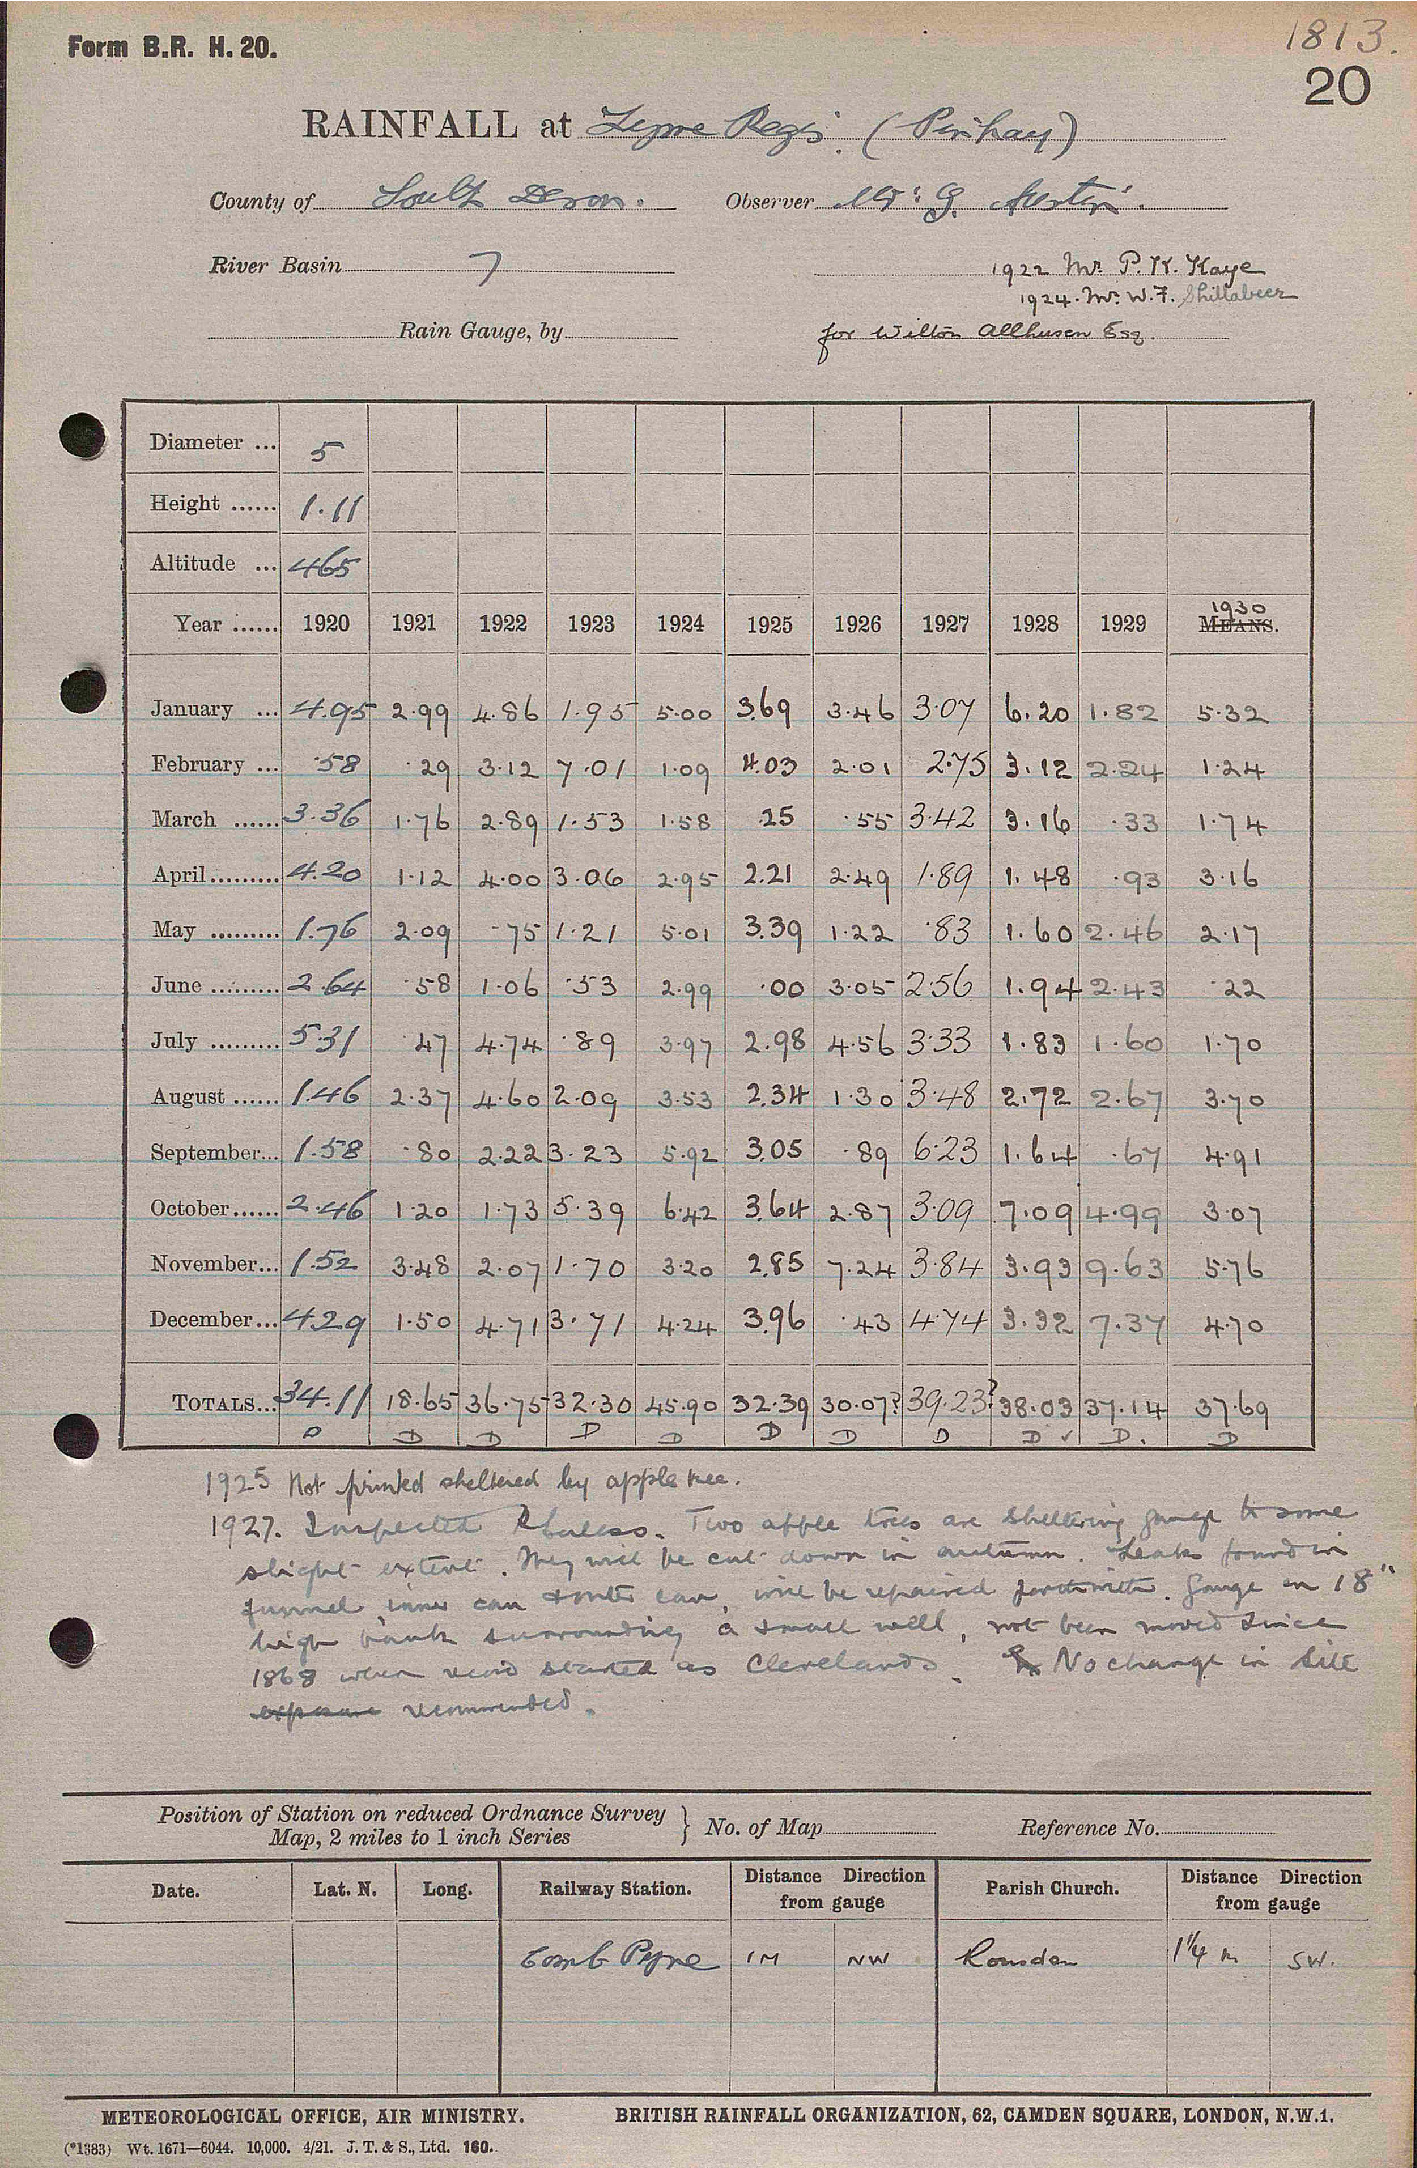 Form B.R. H. 20.
1813.
20
RAINFALL at Lyme Regis. (Pinhay)
County of South Devon. Observer Mr. G. Austin.
River Basin 7
1922 Mr. P. K. Kaye
1924. Mr. W. F. Shillabeer
Rain Gauge, by for Wilton Allhusen Esq.
Diameter ... 5
Height ...... 1.11
Altitude ... 465
Year ...... 1920 1921 1922 1923 1924 1925 1926 1927 1928 1929 1930 MEANS.
January ... 4.95 2.99 4.86 1.95 5.00 3.69 3.46 3.07 6.20 1.82 5.32
February ... .58 .29 3.12 7.01 1.09 4.03 2.01 2.75 3.12 2.24 1.24
March ...... 3.36 1.76 2.89 1.53 1.58 .25 .55 3.42 3.16 .33 1.74
April ......... 4.20 1.12 4.00 3.06 2.95 2.21 2.49 1.89 1.48 .93 3.16
May ......... 1.76 2.09 .75 1.21 5.01 3.39 1.22 .83 1.60 2.46 2.17
June ......... 2.64 .58 1.06 .53 2.99 .00 3.05 2.56 1.94 2.43 .22
July ......... 5.31 .47 4.74 .89 3.97 2.98 4.56 3.33 1.83 1.60 1.70
August ...... 1.46 2.37 4.60 2.09 3.53 2.34 1.30 3.48 2.72 2.67 3.70
September... 1.58 .80 2.22 3.23 5.92 3.05 .89 6.23 1.64 .67 4.91
October ...... 2.46 1.20 1.73 5.39 6.42 3.64 2.87 3.09 7.09 4.99 3.07
November... 1.52 3.48 2.07 1.70 3.20 2.85 7.24 3.84 3.93 9.63 5.76
December... 4.29 1.50 4.71 3.71 4.24 3.96 .43 4.74 3.32 7.37 4.70
TOTALS... 34.11 18.65 36.75 32.30 45.90 32.39 30.07? 39.23? 38.03 37.14 37.69
D D D D D D D D D ✓ D. D
1925 Not printed sheltered by apple tree.
1927. Inspected. Two apple trees are sheltering gauge to some
slight extent. They will be cut down in autumn. Leak found in
funnel, inner can & outer can, will be repaired forthwith. Gauge on 18"
high bank surrounding a small well, not been moved since
1868 when record started as Clevelands. No change in site
exposure recommended.
Position of Station on reduced Ordnance Survey
Map, 2 miles to 1 inch Series } No. of Map Reference No.
Date. Lat. N. Long. Railway Station. Distance Direction from gauge Parish Church. Distance Direction from gauge
Comb Pyne 1 M NW Rousdon 1¼ m SW.
METEOROLOGICAL OFFICE, AIR MINISTRY. BRITISH RAINFALL ORGANIZATION, 62, CAMDEN SQUARE, LONDON, N.W.1.
(*1383) Wt. 1671—6044. 10,000. 4/21. J. T. & S., Ltd. 160.